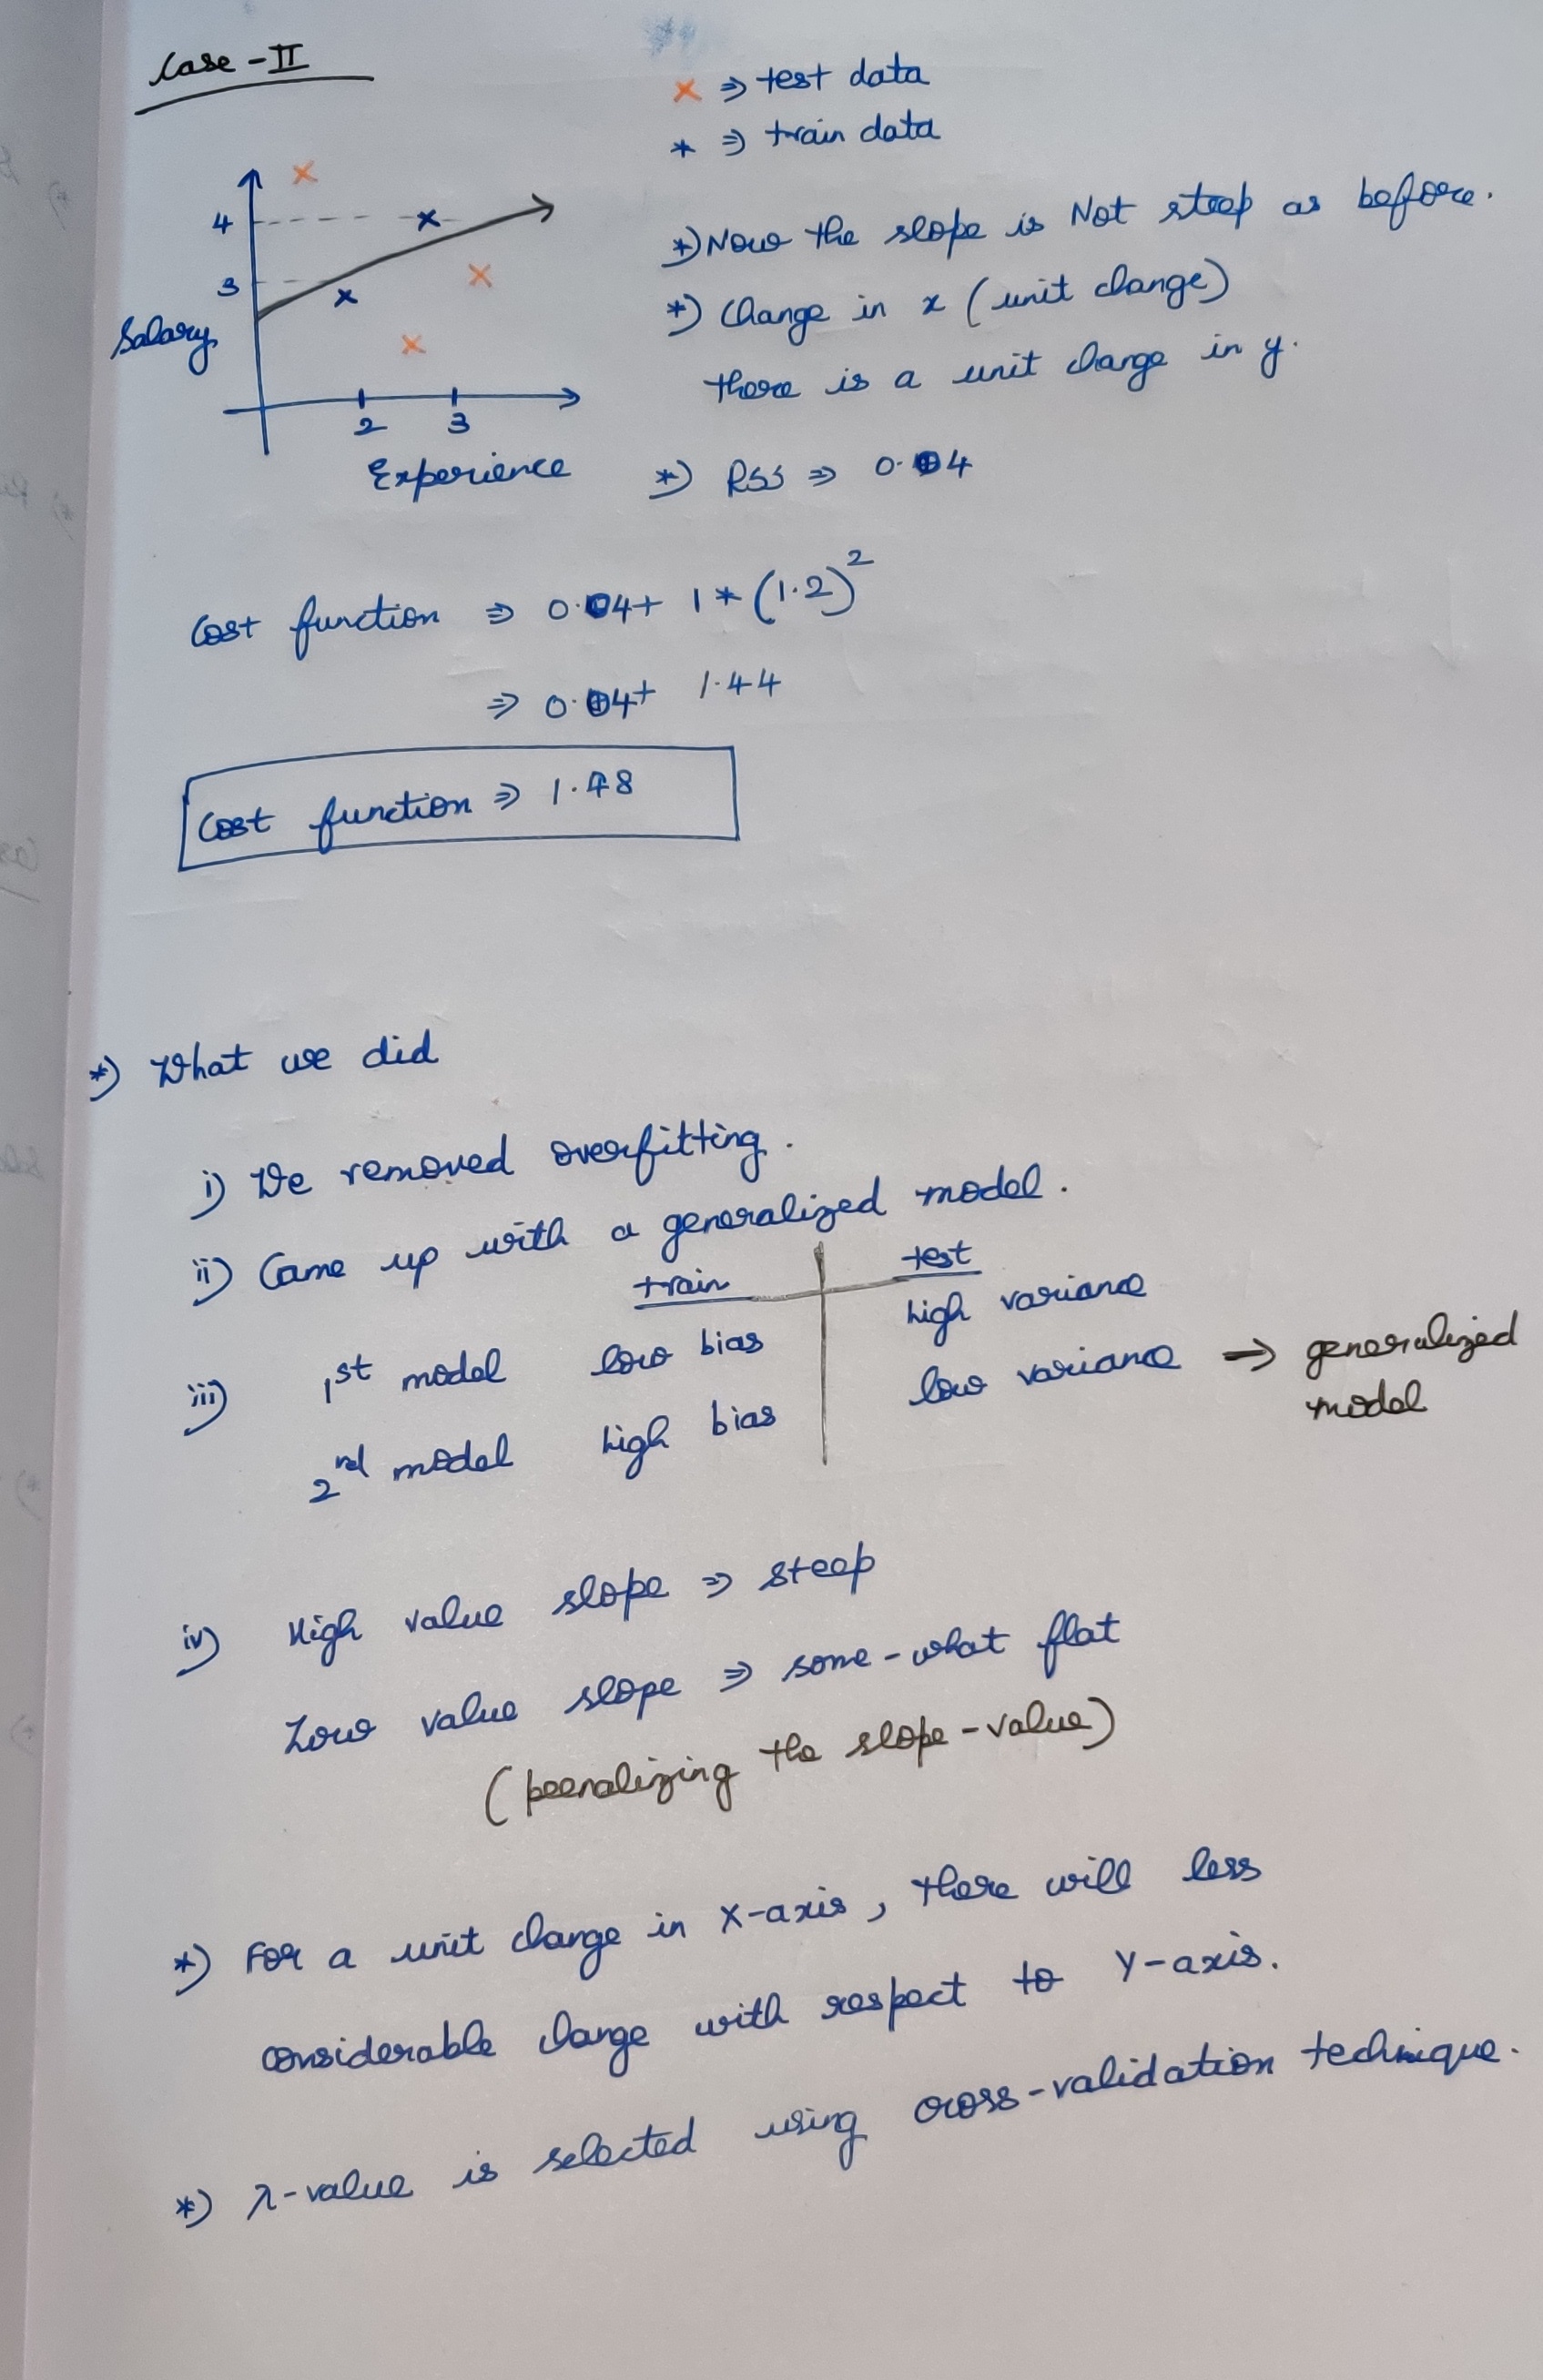 Case-II
x ⇒ test data
* ⇒ train data
4
3
Salary
2
3
Experience
*) Now the slope is Not steep as before.
*) Change in x (unit change)
there is a unit change in y.
*) RSS ⇒ 0.04
Cost function ⇒ 0.04 + 1 * (1.2)²
⇒ 0.04 + 1.44
Cost function ⇒ 1.48
*) What we did
i) We removed overfitting.
ii) Came up with a generalized model.
train test
iii) 1st model low bias high variance
2nd model high bias low variance → generalized
model
iv) High value slope ⇒ steep
Low value slope ⇒ some-what flat
(peenalizing the slope-value)
*) For a unit change in X-axis, there will less
considerable change with respect to Y-axis.
*) λ-value is selected using cross-validation technique.